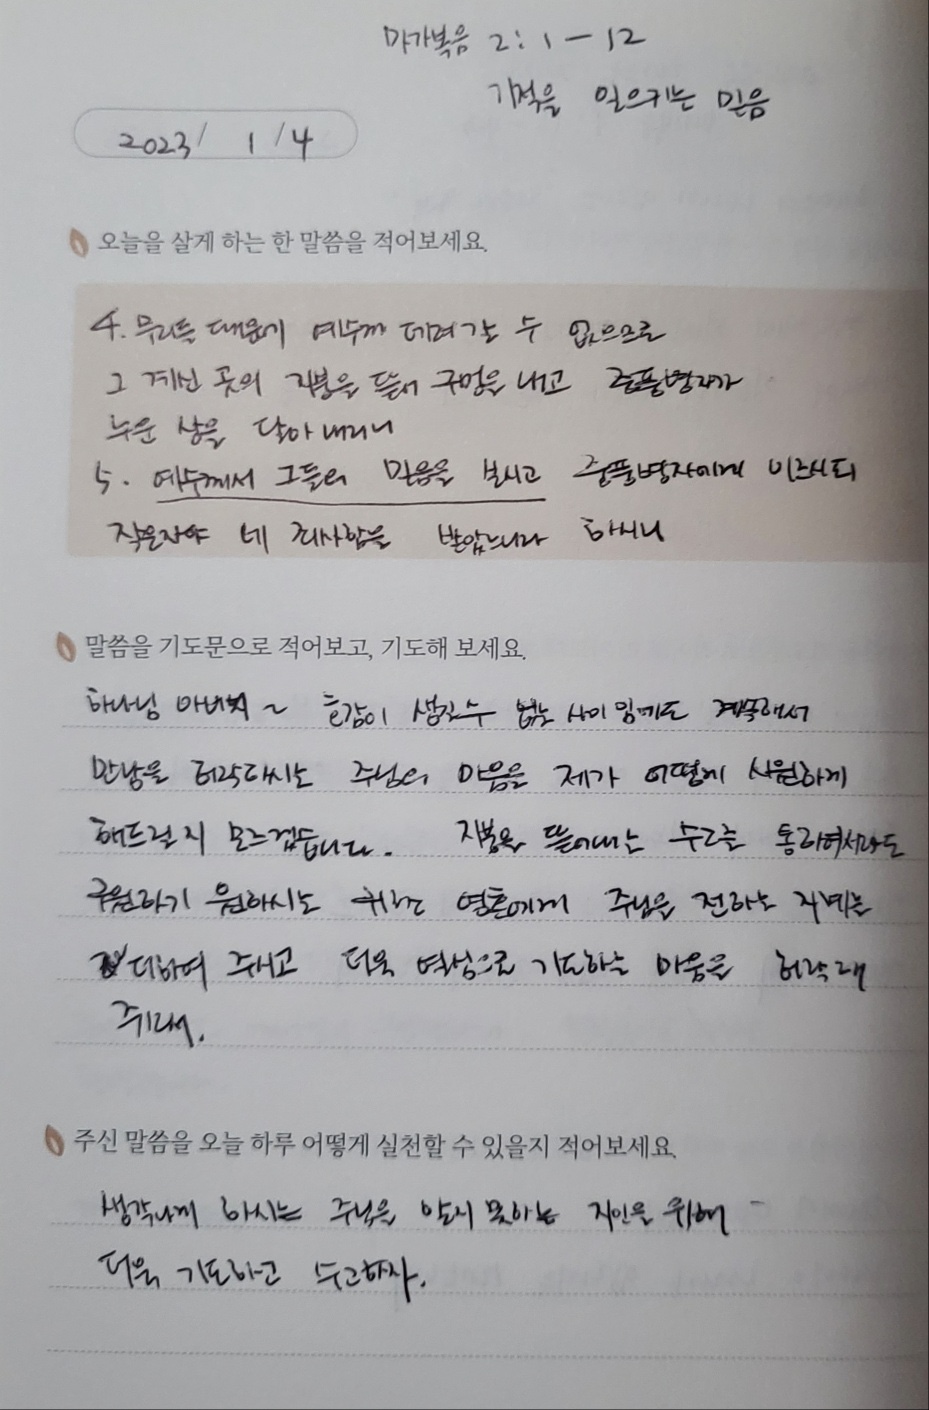 마가복음 2:1-12
기적을 일으키는 믿음
2023/ 1/4
오늘을 살게 하는 한 말씀을 적어보세요.
4. 무리들 때문에 예수께 데려갈 수 없으므로
그 계신 곳의 지붕을 뜯어 구멍을 내고 중풍병자가
누운 상을 달아 내리니
5. 예수께서 그들의 믿음을 보시고 중풍병자에게 이르시되
작은자야 네 죄사함을 받았느니라 하시니
말씀을 기도문으로 적어보고, 기도해 보세요.
하나님 아버지 ~ 호감이 생길수 없는 사이임에도 계속해서
만남을 허락하시는 주님의 마음을 제가 어떻게 시원하게
해드릴지 모르겠습니다. 지붕을 뜯어내는 수고를 통하여서라도
구원하기 원하시는 영혼에게 주님을 전하는 지혜를
더하여 주시고 더욱 열심으로 기도하는 마음을 허락해
주기래서.
주신 말씀을 오늘 하루 어떻게 실천할 수 있을지 적어보세요.
생각나게 하시는 주님을 알지 못하는 지인을 위해
더욱 기도하고 수고하자.